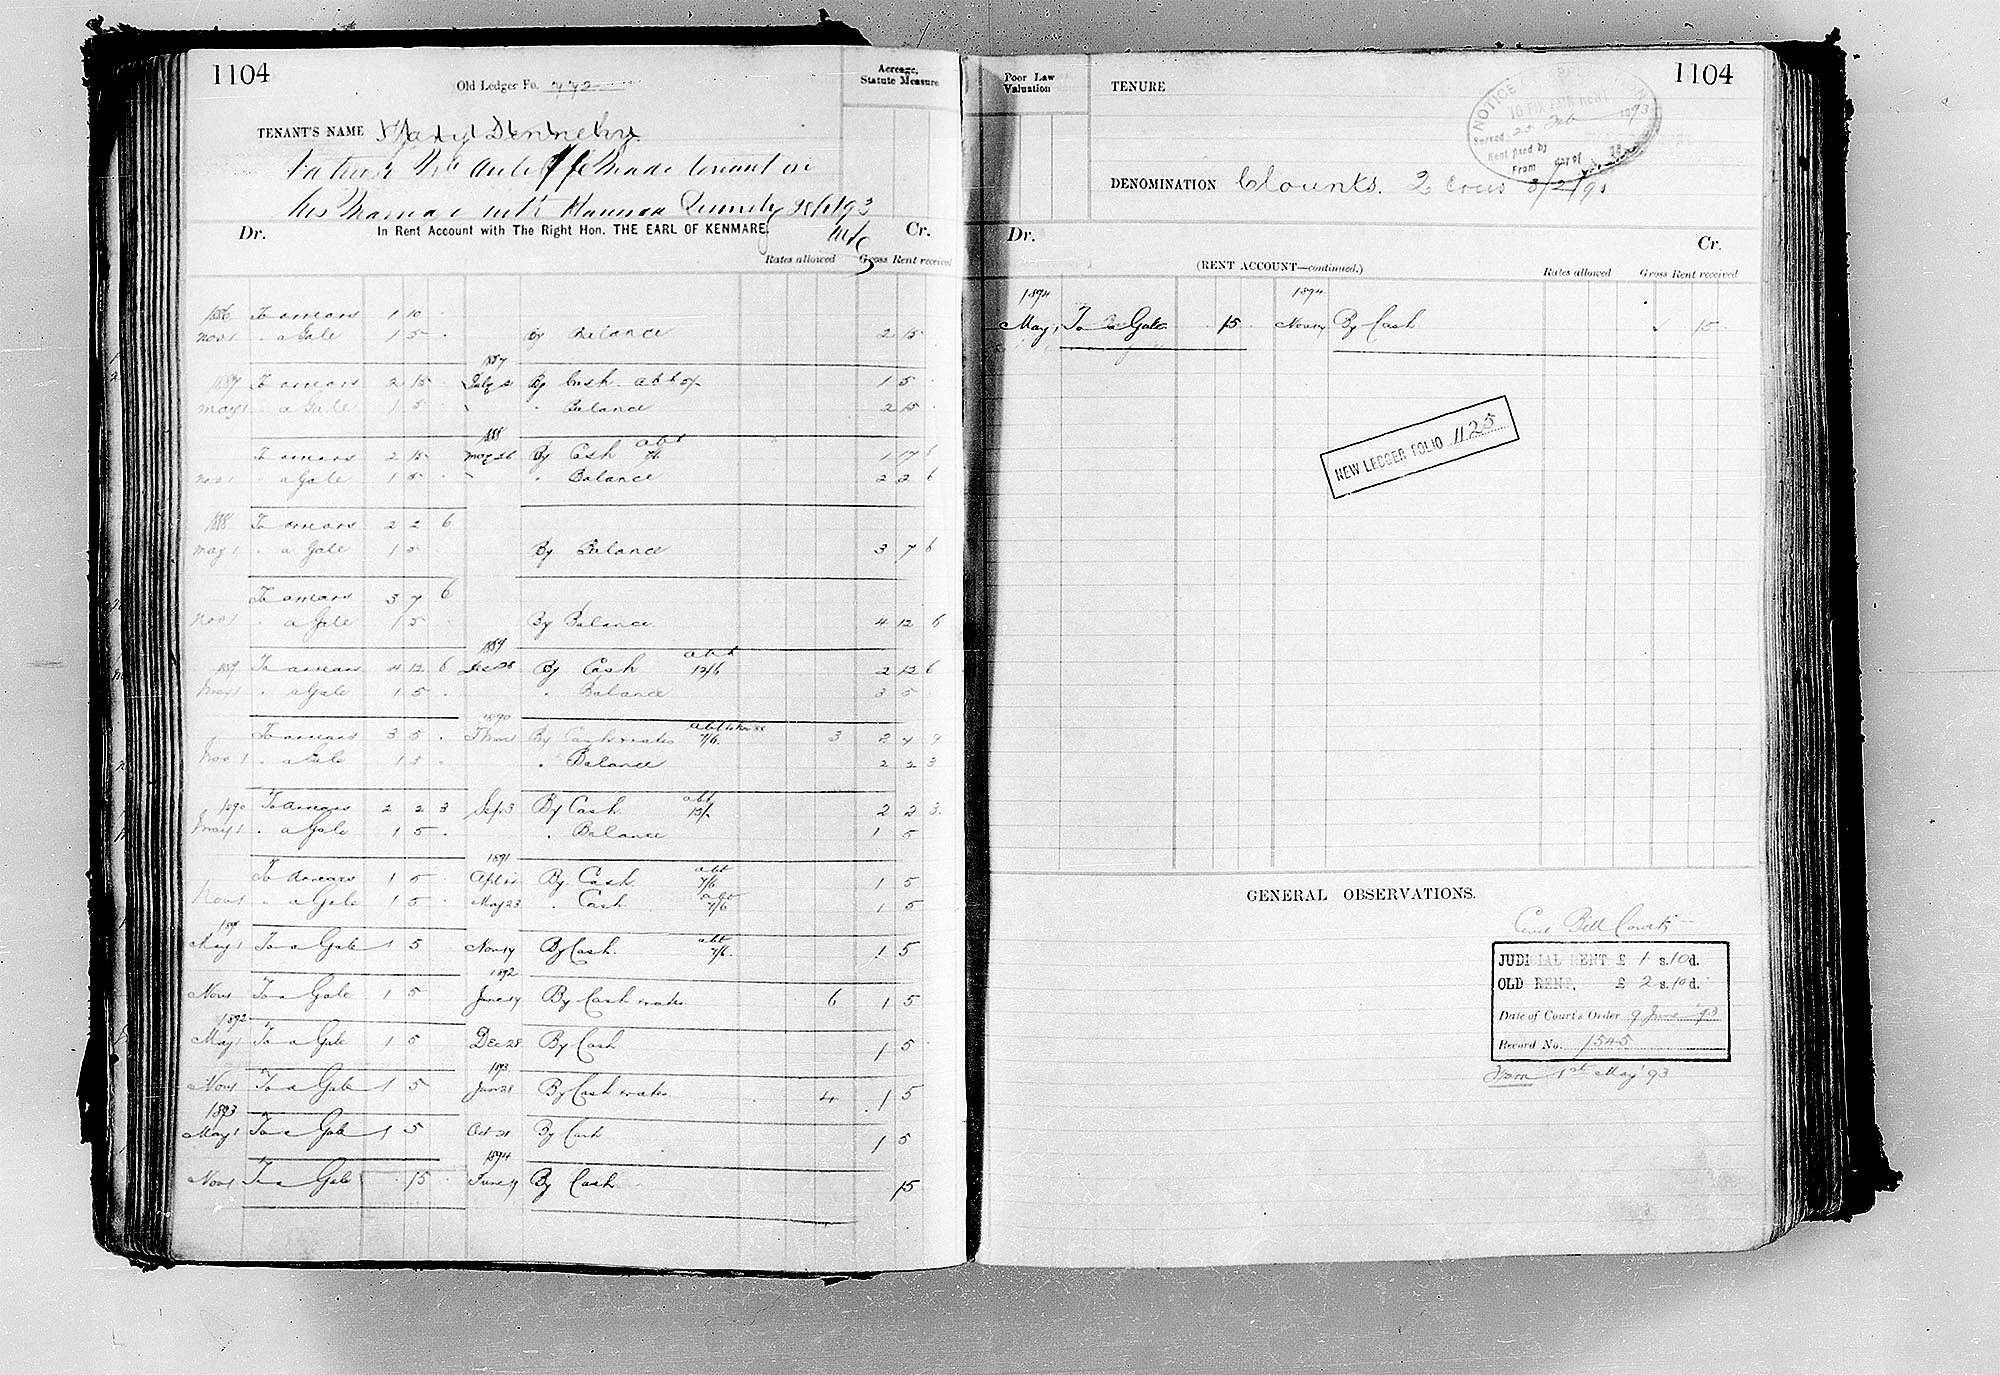 1104
Old Ledger Fo. 772
Acreage, Statute Measure
TENANT'S NAME Mary Dennehy
made tenant on
his marriage with Hannah
Dr. In Rent Account with The Right Hon. THE EARL OF KENMARE. Cr.
Rates allowed Gross Rent received
1886 To arrears 1 10
Nov 1 " a Gale 1 5 By Balance 2 15
1887
1887 To arrears 2 15 July 2 By Cash abt 5/- 1 5
May 1 " a Gale 1 5 " Balance 2 15
1888 abt
To arrears 2 15 May 26 By Cash 7/6 1 17 6
Nov 1 " a Gale 1 5 " Balance 2 2 6
1888 To arrears 2 2 6
May 1 " a Gale 1 5 By Balance 3 7 6
To arrears 3 7 6
Nov 1 " a Gale 1 5 By Balance 4 12 6
1889 abt
1889 To arrears 4 12 6 Dec 28 By Cash 12/6 2 12 6
May 1 " a Gale 1 5 " Balance 3 5
1890
To arrears 3 5 By Cash & rates 7/6 3 2 4 9
Nov 1 " a Gale 1 5 " Balance 2 2 3
1890 To arrears 2 2 3 Sep 3 By Cash abt 2 2 3
May 1 " a Gale 1 5 " Balance 1 5
1891
To arrears 1 5 Apl By Cash abt 7/6 1 5
Nov 1 " a Gale 1 5 May 23 " Cash abt 7/6 1 5
1891
May 1 To a Gale 1 5 Nov 17 By Cash abt 7/6 1 5
1892
Nov 1 To a Gale 1 5 June 17 By Cash & rates 6 1 5
1892
May 1 To a Gale 1 5 Dec 28 By Cash 1 5
1893
Nov 1 To a Gale 1 5 Jun 28 By Cash & rates 4 1 5
1893
May 1 To a Gale 1 5 Oct 21 By Cash 1 5
1894
Nov 1 To a Gale 15 June 11 By Cash 15
Poor Law Valuation
TENURE
1104
NOTICE
TO FIX FAIR RENT
Served 25 Feb 1893
Rent fixed by
From day of 18
DENOMINATION Clounts. 2 cows
Dr. Cr.
(RENT ACCOUNT—continued.) Rates allowed Gross Rent received
1894 1894
May 1 To a Gale 15 Nov 17 By Cash 15
NEW LEDGER FOLIO 1125
GENERAL OBSERVATIONS.
Civil Bill Court
JUDICIAL RENT £ 1 s.10d.
OLD RENT, £ 2 s.10d.
Date of Court's Order 9 June '93
Record No. 1545
From 1st May '93